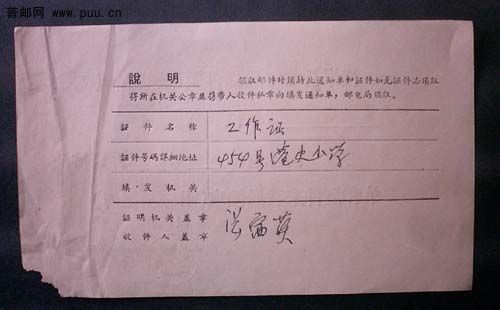 普邮网 www.puu.cn
說明
领取邮件时须持此通知单和証件如无証件必须取
得所在机关公章並携带人收件私章向填发通知单,邮电局领取。
証件名称 工作证
証件号碼詳細地址 454号 小学
填发机关
証明机关盖章
收件人盖章